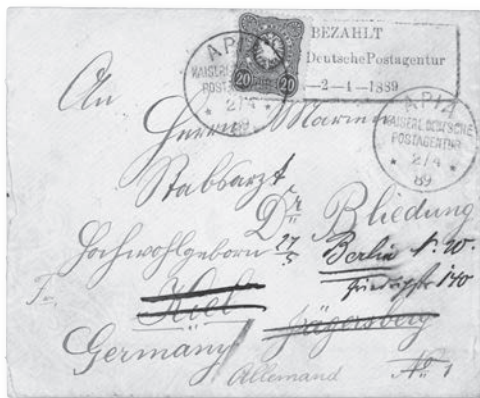 BEZAHLT
Deutsche Postagentur
—2-4—1889
20 20
APIA
KAISERL. DEUTSCHE
POSTAGENTUR
* 2/4 *
89
APIA
KAISERL. DEUTSCHE
POSTAGENTUR
* 2/4 *
89
An
Herrn Marine
Stabsarzt
Dr Bliedung
Hochwohlgeboren 27/5 Berlin N.W.
Friedrichstr 140
Kiel Jägersberg
Germany
Allemand No 1